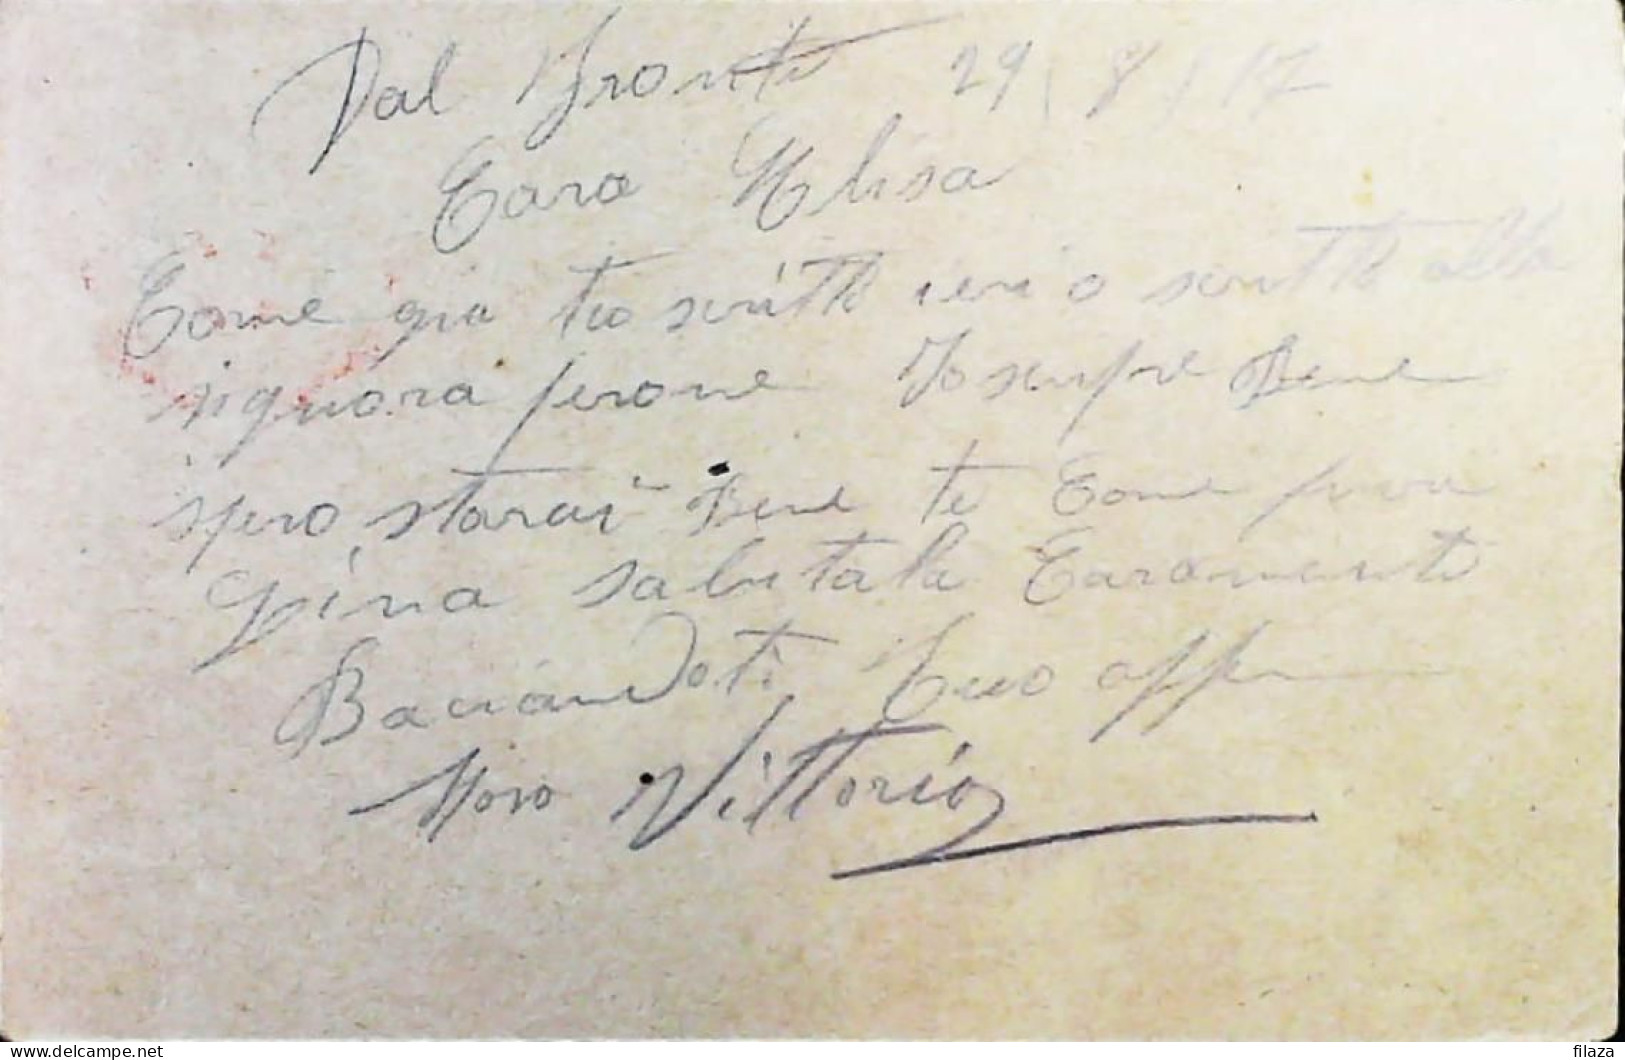 Dal Fronte 29/8/17
Cara Elisa
Come già tio scritto ieri o scritto alla
signora perone Io sempre Bene
spero starai Bene te Come pura
Gina salutala Caramente
Baciandoti tuo aff
Moro Vittorio
filaza